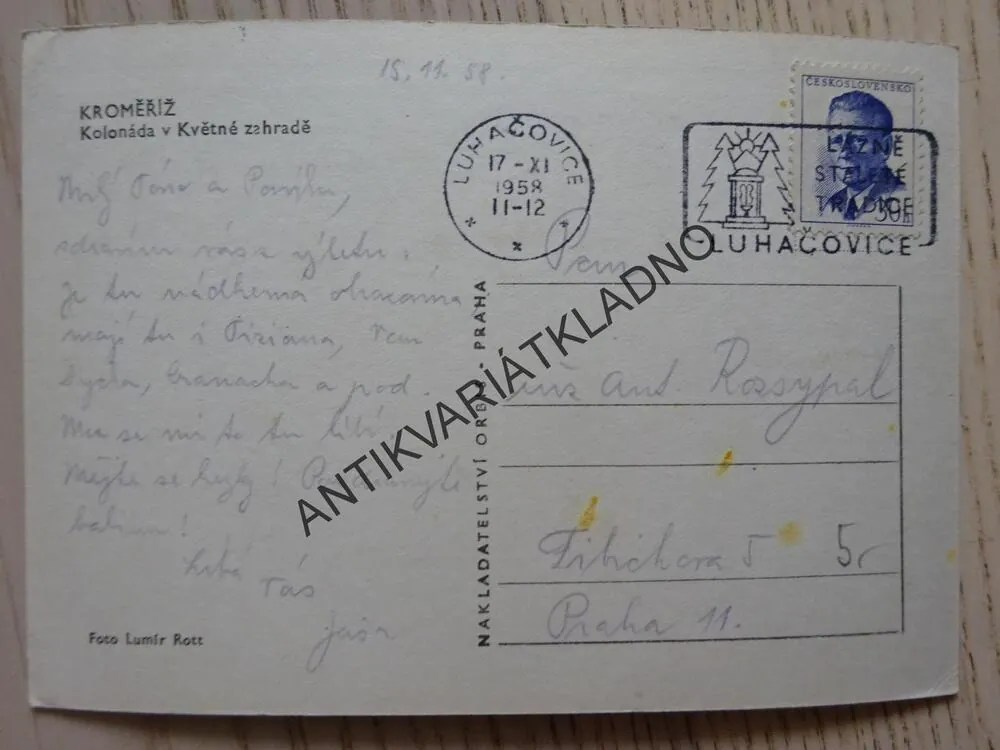 15. 11. 58.
KROMĚŘÍŽ
Kolonáda v Květné zahradě
Milý Táto a
zdravím vás z výletu,
je tu nádherná obrazárna
mají tu i Tiziana, Van
Dycka, Cranacha a pod.
se mi to tu líbí.
Mějte se hezky! Pozdravujte
babičku!
Líbá
Vás
Foto Lumír Rott
LUHAČOVICE
17-XI
1958
11-12
ČESKOSLOVENSKO
50h
LÁZNĚ
STALETÉ
TRADICE
LUHAČOVICE
NAKLADATELSTVÍ ORBIS - PRAHA
Pan
Ant. Rozsypal
Fibichova 5
5,-
Praha 11.
ANTIKVARIÁTKLADNO